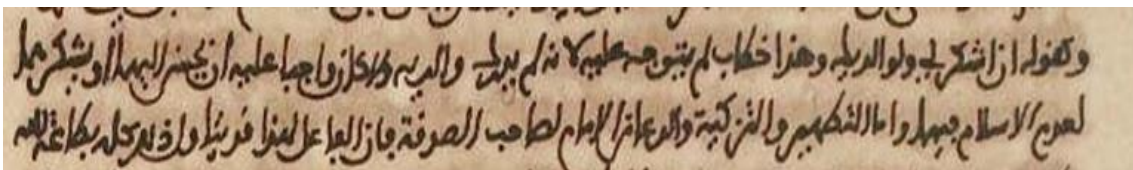 وكقوله ان اشكر لي ولوالديك وهذا خطاب لم يتوجه عليه لانه لم يدرك والديه ولا كان واجبا عليه ان يحسن اليهما او يشكرهما
لعدم الاسلام فيهما واما التطهير والتزكية والدعاء من الامام لصاحب الصدقة فان الفاعل لهذا قد ينال ذلك كله بطاعة الله